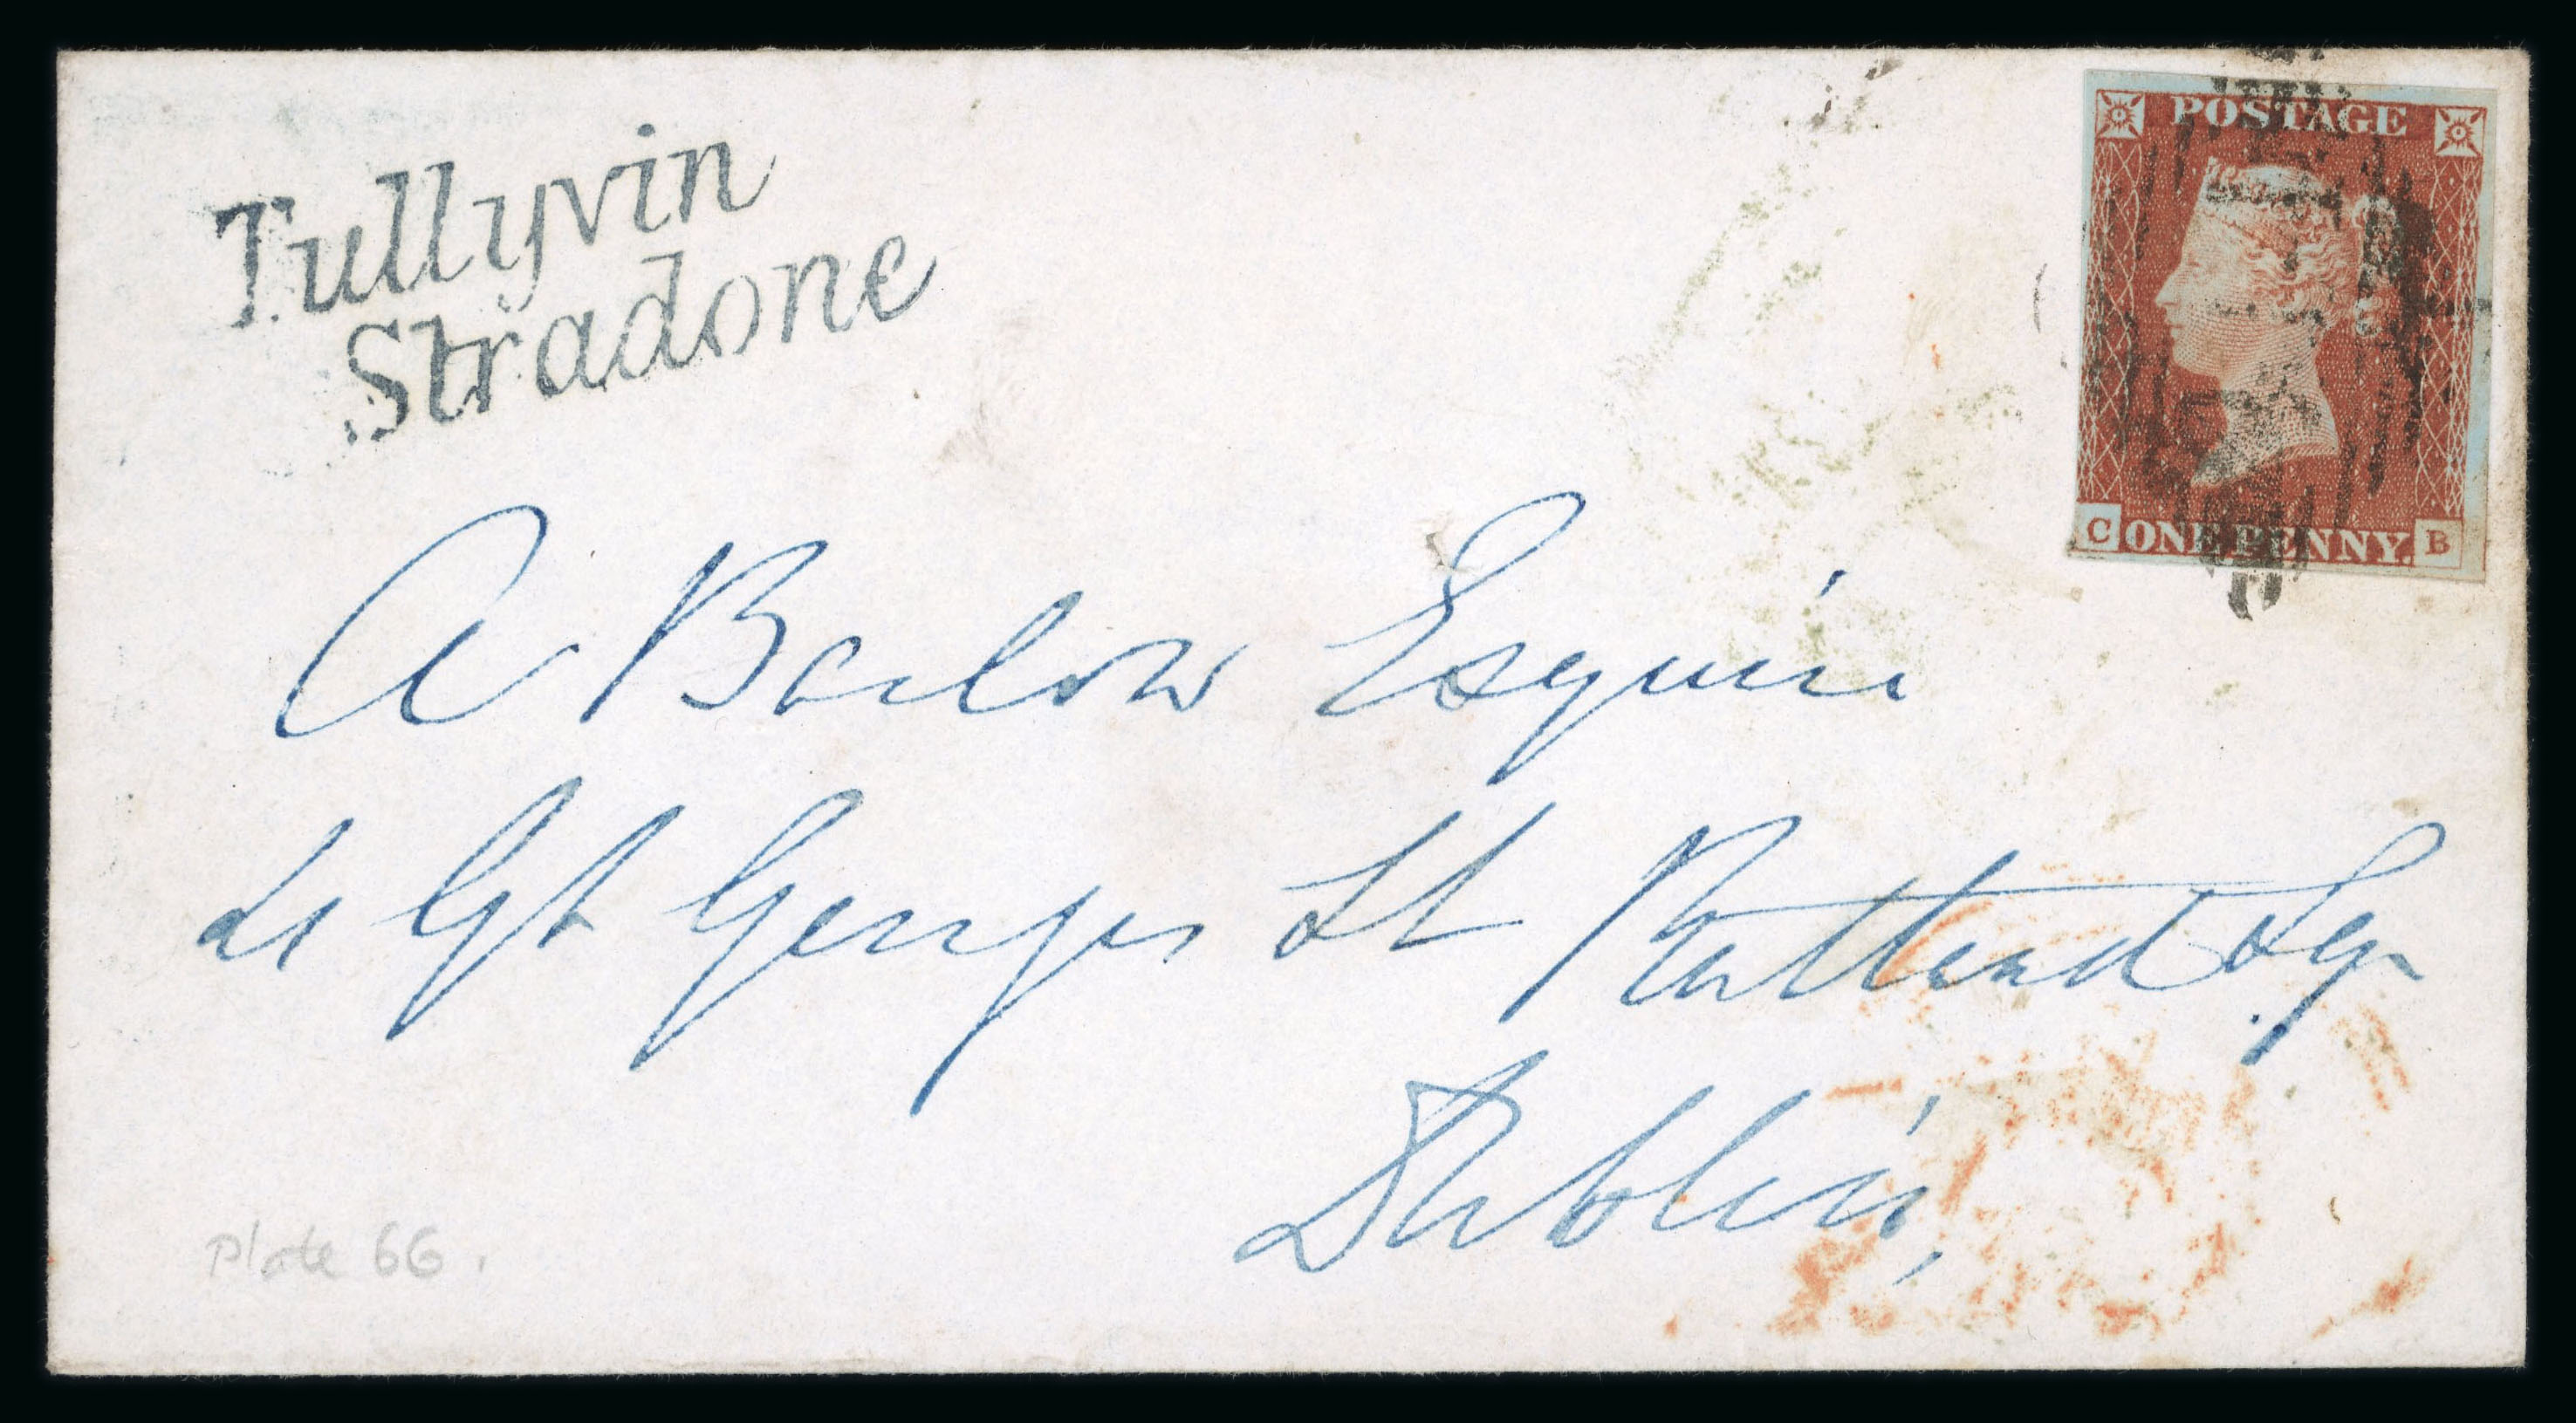 Tullyvin
Stradone
POSTAGE
C ONE PENNY. B
A Barlow Esquire
Gt Georges St Rutland Sq
Dublin,
Plate 66.